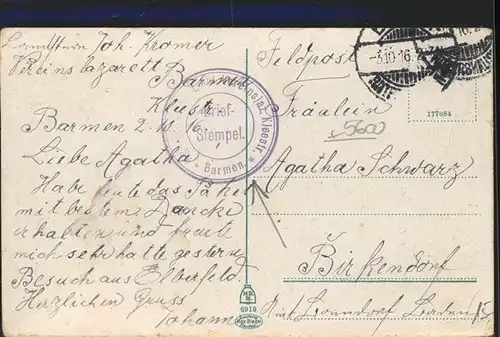 Landstürm Joh. Kromer
Vereinslazarett Barmen
Kleestr
Barmen 2.10.16
Liebe Agatha
Habe heute das Paket
mit bestem Dancke
erhalten und freute
mich sehr hatte gestern
Besuch aus Elberfeld.
Herzlichen Gruss
Johann
Brief-
Stempel.
Kleestr.
* Barmen. *
Feldpost
Fräulein
560
Agatha Schwarz
Birkendorf
Amt Bonndorf Baden
-3.10.16.
177084
6919